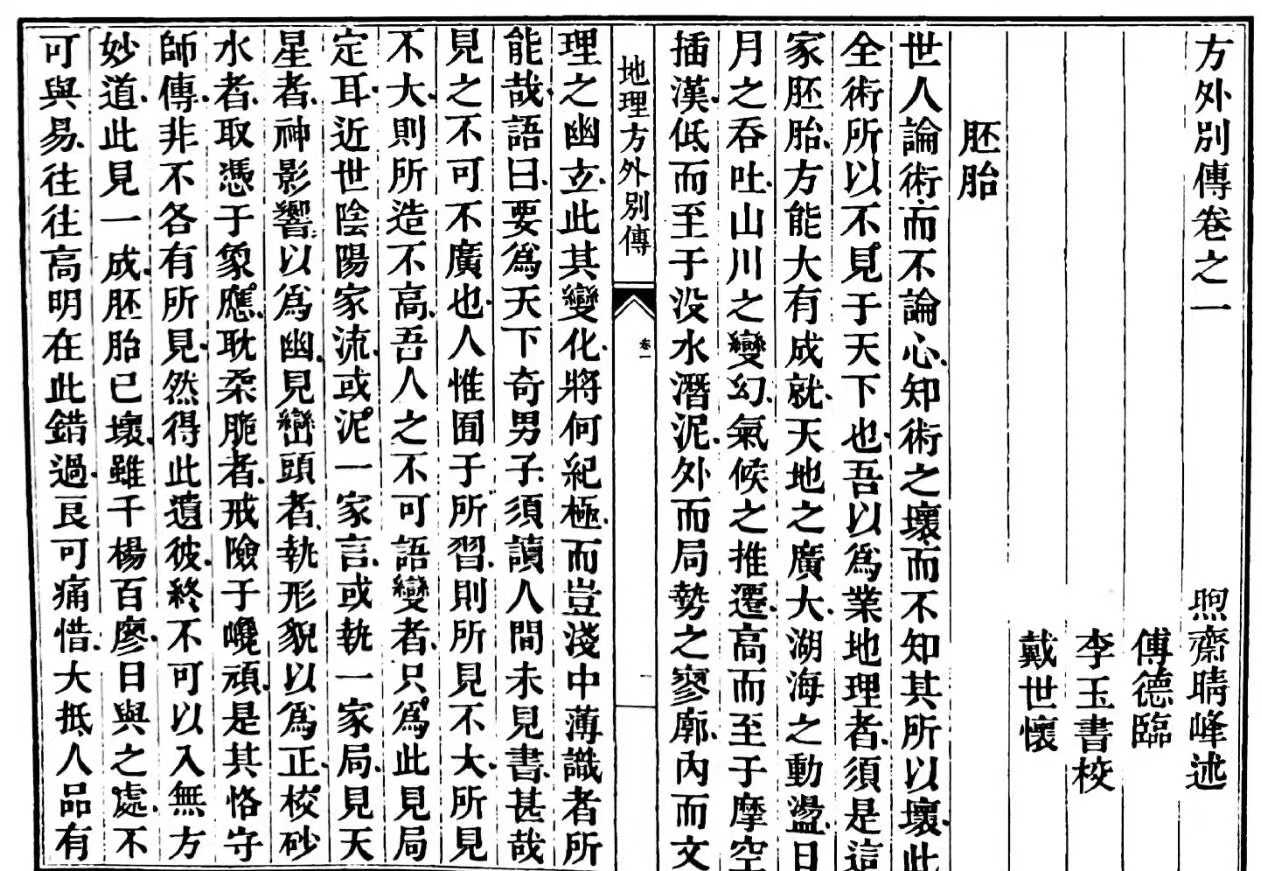 方外別傳卷之一
煦齋晴峰述
傅德臨
李玉書校
戴世懷
胚胎
世人論術而不論心知術之壞而不知其所以壞此
全術所以不見于天下也吾以為業地理者須是這
家胚胎方能大有成就天地之廣大湖海之動盪日
月之吞吐山川之變幻氣候之推遷高而至于摩空
插漢低而至于没水潛泥外而局勢之寥廓内而文
地理方外別傳
卷一
一
理之幽玄此其變化將何紀極而豈淺中薄識者所
能哉語曰要為天下奇男子須讀人間未見書甚哉
見之不可不廣也人惟囿于所習則所見不大所見
不大則所造不高吾人之不可語變者只為此見局
定耳近世陰陽家流或泥一家言或執一家局見天
星者神影響以為幽見巒頭者執形貌以為正校砂
水者取憑于象應耽柔脆者戒險于巉頑是其恪守
師傳非不各有所見然得此遺彼終不可以入無方
妙道此見一成胚胎已壞雖千楊百廖日與之處不
可與易往往高明在此錯過良可痛惜大抵人品有